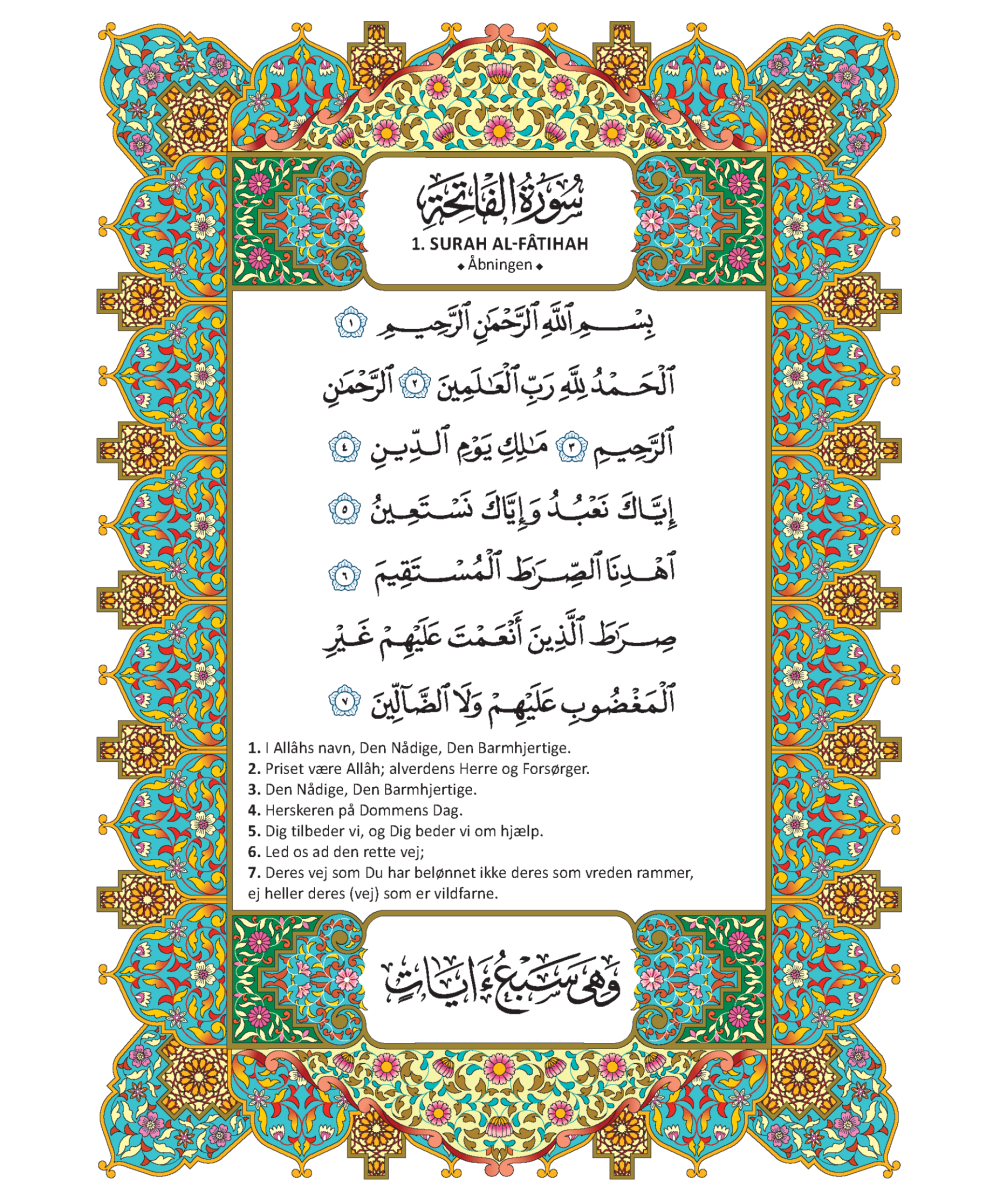 سُورَةُ الْفَاتِحَةِ
1. SURAH AL-FÂTIHAH
◆ Åbningen ◆
بِسْمِ ٱللَّهِ ٱلرَّحْمَـٰنِ ٱلرَّحِيمِ ١
ٱلْحَمْدُ لِلَّهِ رَبِّ ٱلْعَـٰلَمِينَ ٢ ٱلرَّحْمَـٰنِ
ٱلرَّحِيمِ ٣ مَـٰلِكِ يَوْمِ ٱلدِّينِ ٤
إِيَّاكَ نَعْبُدُ وَإِيَّاكَ نَسْتَعِينُ ٥
ٱهْدِنَا ٱلصِّرَٰطَ ٱلْمُسْتَقِيمَ ٦
صِرَٰطَ ٱلَّذِينَ أَنْعَمْتَ عَلَيْهِمْ غَيْرِ
ٱلْمَغْضُوبِ عَلَيْهِمْ وَلَا ٱلضَّآلِّينَ ٧
1. I Allâhs navn, Den Nådige, Den Barmhjertige.
2. Priset være Allâh; alverdens Herre og Forsørger.
3. Den Nådige, Den Barmhjertige.
4. Herskeren på Dommens Dag.
5. Dig tilbeder vi, og Dig beder vi om hjælp.
6. Led os ad den rette vej;
7. Deres vej som Du har belønnet ikke deres som vreden rammer,
ej heller deres (vej) som er vildfarne.
وَهِىَ سَبْعُ ءَايَاتٍ